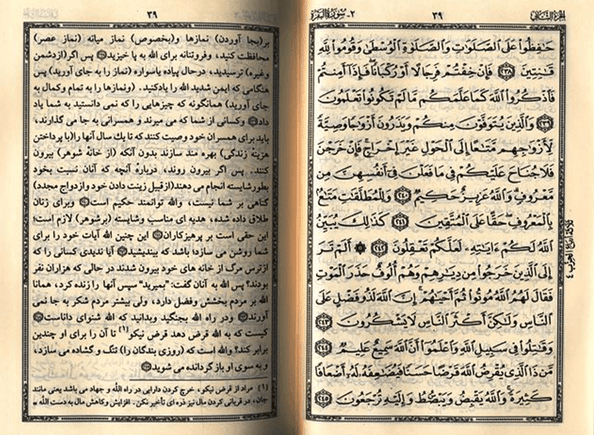 الجزء الثانی ٣٩ ٢- سورة البقرة
حَٰفِظُوا۟ عَلَى ٱلصَّلَوَٰتِ وَٱلصَّلَوٰةِ ٱلْوُسْطَىٰ وَقُومُوا۟ لِلَّهِ
قَٰنِتِينَ ٢٣٨ فَإِنْ خِفْتُمْ فَرِجَالًا أَوْ رُكْبَانًا فَإِذَآ أَمِنتُمْ
فَٱذْكُرُوا۟ ٱللَّهَ كَمَا عَلَّمَكُم مَّا لَمْ تَكُونُوا۟ تَعْلَمُونَ
٢٣٩ وَٱلَّذِينَ يُتَوَفَّوْنَ مِنكُمْ وَيَذَرُونَ أَزْوَٰجًا وَصِيَّةً
لِّأَزْوَٰجِهِم مَّتَٰعًا إِلَى ٱلْحَوْلِ غَيْرَ إِخْرَاجٍ فَإِنْ خَرَجْنَ
فَلَا جُنَاحَ عَلَيْكُمْ فِى مَا فَعَلْنَ فِىٓ أَنفُسِهِنَّ مِن
مَّعْرُوفٍ وَٱللَّهُ عَزِيزٌ حَكِيمٌ ٢٤٠ وَلِلْمُطَلَّقَٰتِ مَتَٰعٌ
بِٱلْمَعْرُوفِ حَقًّا عَلَى ٱلْمُتَّقِينَ ٢٤١ كَذَٰلِكَ يُبَيِّنُ
ٱللَّهُ لَكُمْ ءَايَٰتِهِۦ لَعَلَّكُمْ تَعْقِلُونَ ٢٤٢ أَلَمْ تَرَ
إِلَى ٱلَّذِينَ خَرَجُوا۟ مِن دِيَٰرِهِمْ وَهُمْ أُلُوفٌ حَذَرَ ٱلْمَوْتِ
فَقَالَ لَهُمُ ٱللَّهُ مُوتُوا۟ ثُمَّ أَحْيَٰهُمْ إِنَّ ٱللَّهَ لَذُو فَضْلٍ عَلَى
ٱلنَّاسِ وَلَٰكِنَّ أَكْثَرَ ٱلنَّاسِ لَا يَشْكُرُونَ ٢٤٣
وَقَٰتِلُوا۟ فِى سَبِيلِ ٱللَّهِ وَٱعْلَمُوٓا۟ أَنَّ ٱللَّهَ سَمِيعٌ عَلِيمٌ ٢٤٤
مَّن ذَا ٱلَّذِى يُقْرِضُ ٱللَّهَ قَرْضًا حَسَنًا فَيُضَٰعِفَهُۥ لَهُۥٓ أَضْعَافًا
كَثِيرَةً وَٱللَّهُ يَقْبِضُ وَيَبْصُۜطُ وَإِلَيْهِ تُرْجَعُونَ ٢٤٥
٣٩
بر(بجا آوردن) نمازها و(بخصوص) نماز میانه (نماز عصر)
محافظت کنید، وفروتنانه برای الله به پا خیزید پس اگر(ازدشمن
وغیره) ترسیدید، درحال پیاده یاسواره (نماز را به جای آورید) پس
هنگامی که ایمن شدید الله را یادکنید. (ونمازها را به تمام وکمال به
جای آورید) همانگونه که چیزهایی را که نمی دانستید به شما یاد
داد وکسانی از شما که می میرند و همسرانی به جا می گذارند،
باید برای همسران خود وصیت کنند که تا یك سال آنها را(با پرداختن
هزینهٔ زندگی) بهره مند سازند بدون آنکه (از خانهٔ شوهر) بیرون
کنند. پس اگر بیرون روند، دربارهٔ آنچه که آنان نسبت بخود
بطورشایسته انجام می دهند(ازقبیل زینت دادن خود وازدواج مجدد)
گناهی بر شما نیست، والله توانمند حکیم است وبرای زنان
طلاق داده شده، هدیه ای مناسب وشایسته (برشوهر) لازم است؛
این حقی است بر پرهیزکاران این چنین الله آیات خود را برای
شما روشن می سازد؛ باشد که بیندیشید آیا ندیدی کسانی را که
ازترس مرگ از خانه های خود بیرون شدند در حالی که هزاران نفر
بودند؟ پس الله به آنان گفت: "بمیرید" سپس آنها را زنده کرد، همانا
الله بر مردم بخشش وفضل دارد، ولی بیشتر مردم شکر به جا نمی
آورند ودر راه الله بجنگید وبدانید که الله شنوای داناست
کیست که به الله قرض دهد قرض نیکو(١) تا آن را برای او چندین
برابر کند؟ والله است که (روزی بندگان را) تنگ و گشاده می سازد،
و به سوی او باز گردانده می شوید
(١) مراد از قرض نیکو، خرج کردن دارایی در راه الله و جهاد می باشد یعنی مانند
جان، در قربانی کردن مال نیز ذره ای تأخیر نکن. افزایش وکاهش مال به دست الله